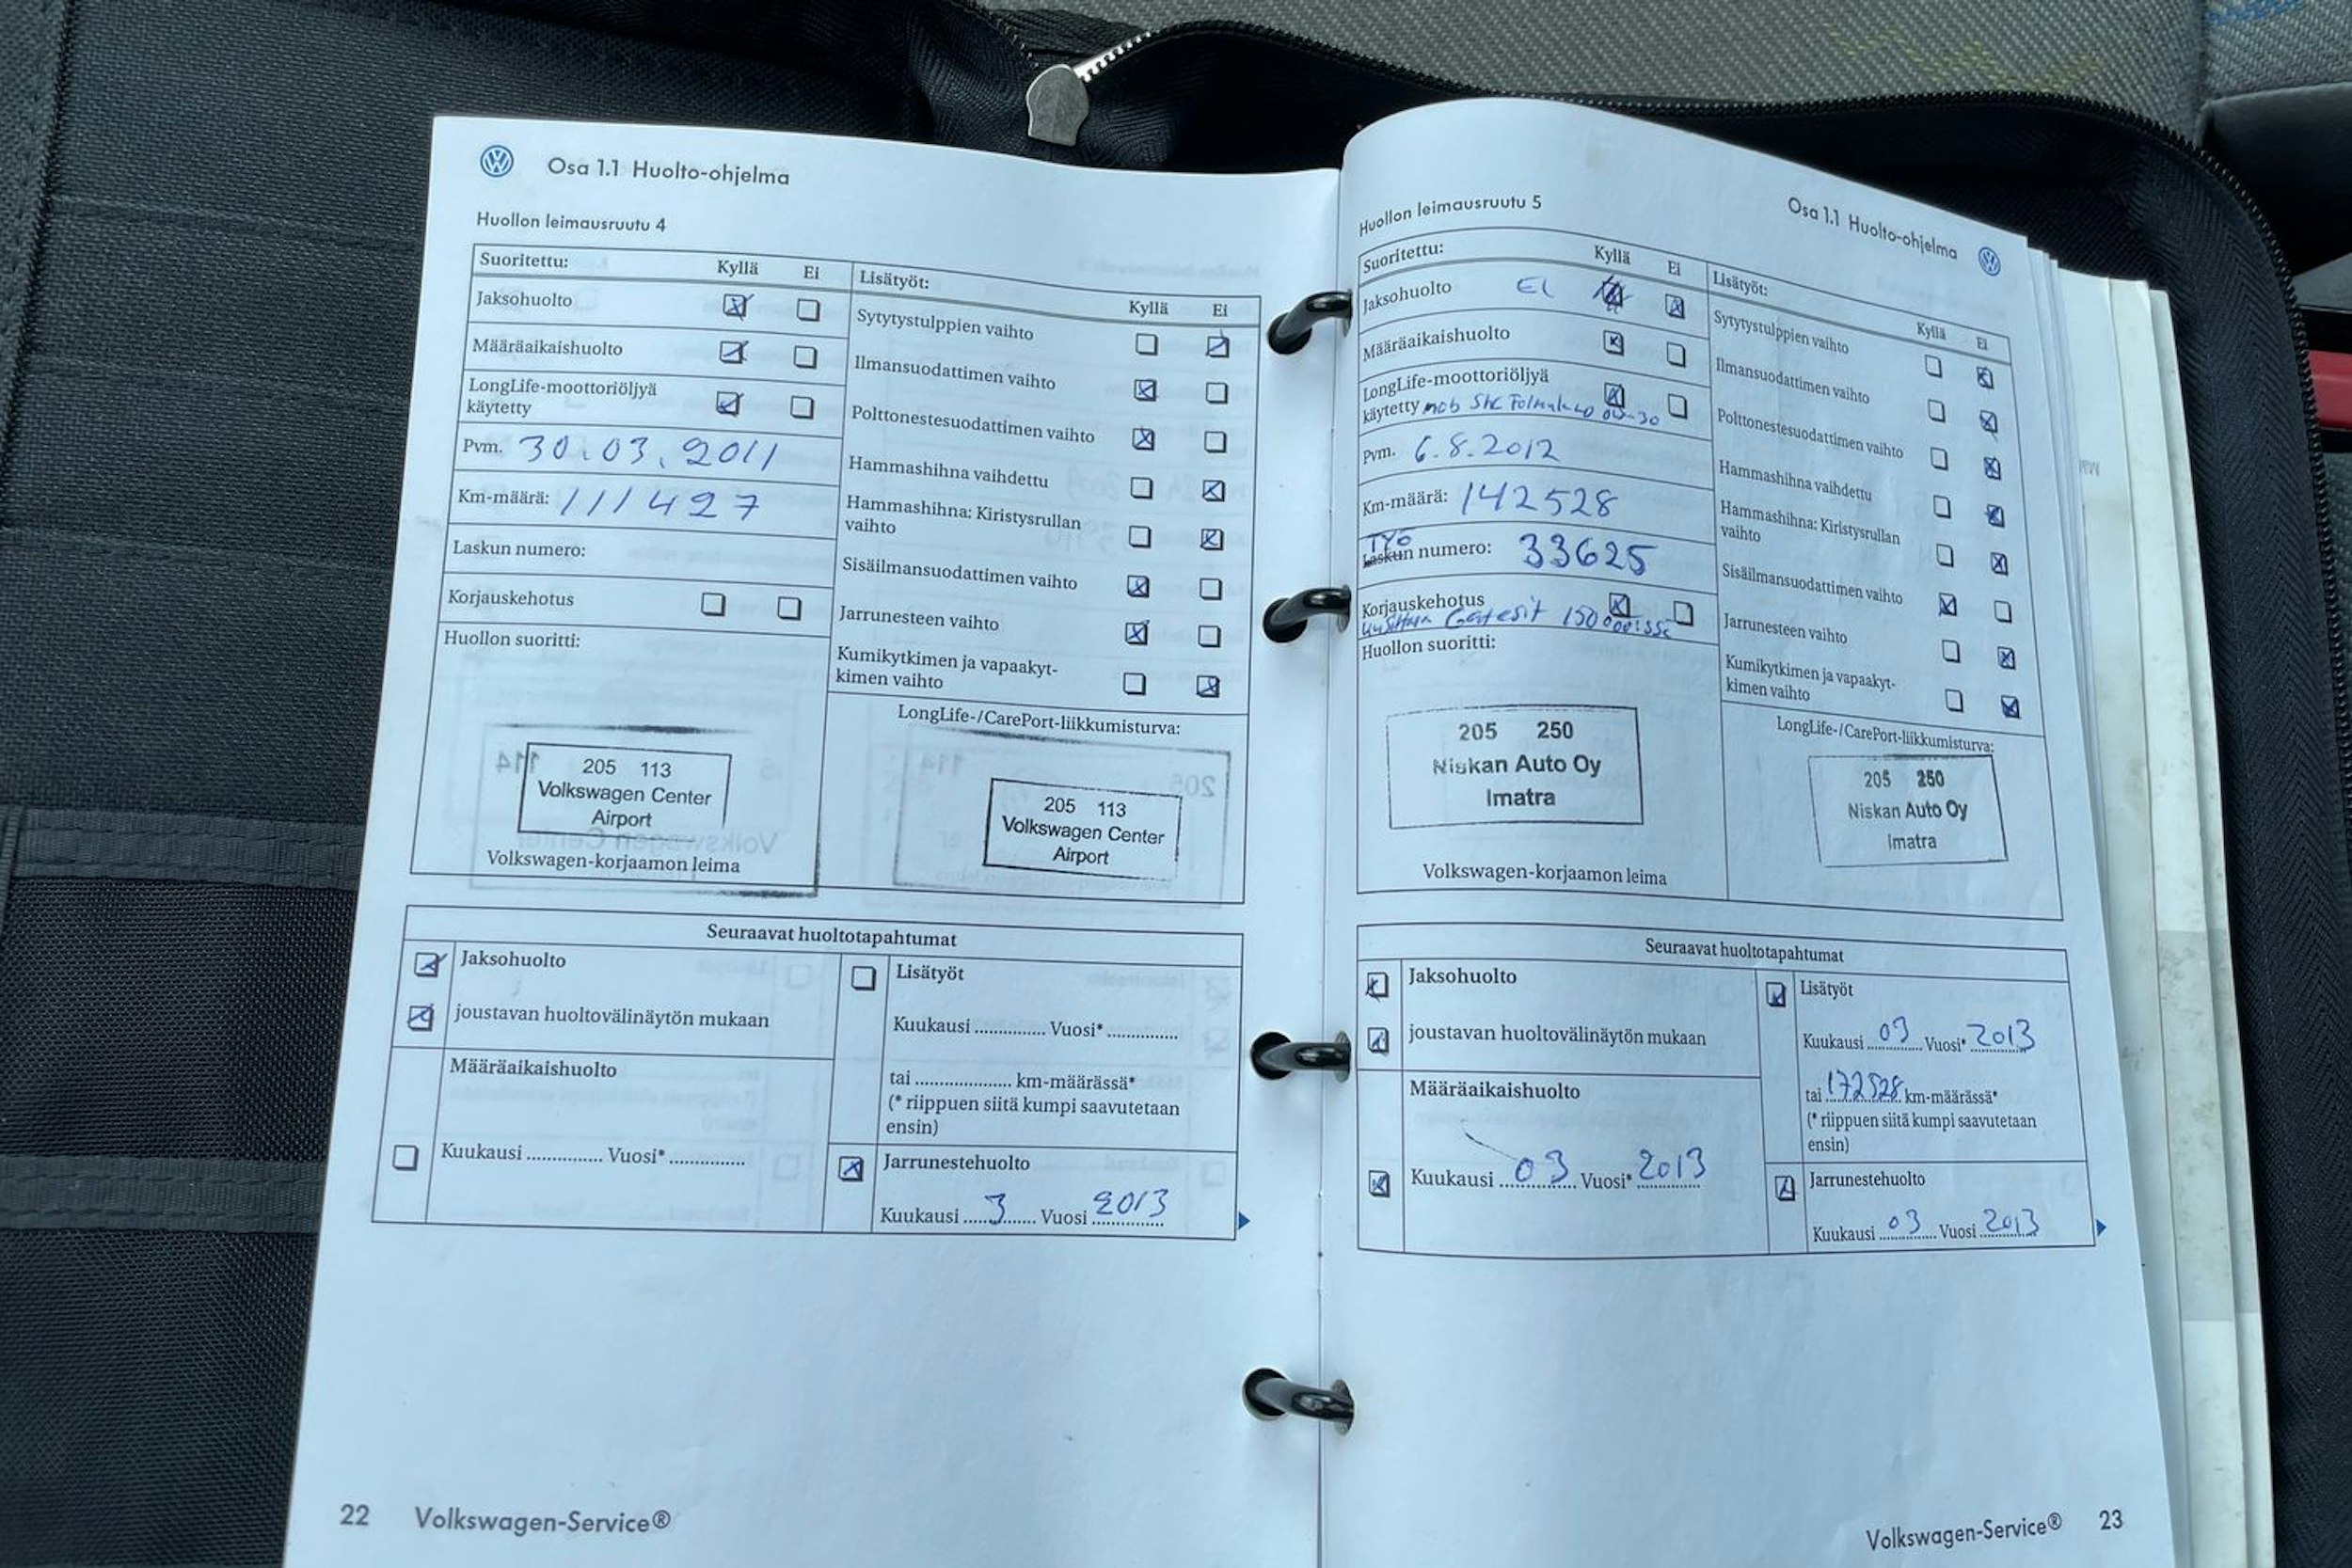 Osa 1.1 Huolto-ohjelma
Huollon leimausruutu 4
Suoritettu: Kyllä Ei
Jaksohuolto
Määräaikaishuolto
LongLife-moottoriöljyä
käytetty
Pvm. 30.03.2011
Km-määrä: 111427
Laskun numero:
Korjauskehotus
Huollon suoritti:
205 113
Volkswagen Center
Airport
Volkswagen-korjaamon leima
Lisätyöt:
Kyllä Ei
Sytytystulppien vaihto
Ilmansuodattimen vaihto
Polttonestesuodattimen vaihto
Hammashihna vaihdettu
Hammashihna: Kiristysrullan
vaihto
Sisäilmansuodattimen vaihto
Jarrunesteen vaihto
Kumikytkimen ja vapaakyt-
kimen vaihto
LongLife-/CarePort-liikkumisturva:
205 113
Volkswagen Center
Airport
Seuraavat huoltotapahtumat
Jaksohuolto
joustavan huoltovälinäytön mukaan
Määräaikaishuolto
Kuukausi ............... Vuosi* ...............
Lisätyöt
Kuukausi ............... Vuosi* ...............
tai .................... km-määrässä*
(* riippuen siitä kumpi saavutetaan
ensin)
Jarrunestehuolto
Kuukausi 3 Vuosi 2013
22 Volkswagen-Service®
Osa 1.1 Huolto-ohjelma
Huollon leimausruutu 5
Suoritettu: Kyllä Ei
Jaksohuolto EI
Määräaikaishuolto
LongLife-moottoriöljyä
käytetty mob SHC 0W-30
Pvm. 6.8.2012
Km-määrä: 142528
TYÖ
Laskun numero: 33625
Korjauskehotus
150 000:ssa
Huollon suoritti:
205 250
Niskan Auto Oy
Imatra
Volkswagen-korjaamon leima
Lisätyöt:
Kyllä Ei
Sytytystulppien vaihto
Ilmansuodattimen vaihto
Polttonestesuodattimen vaihto
Hammashihna vaihdettu
Hammashihna: Kiristysrullan
vaihto
Sisäilmansuodattimen vaihto
Jarrunesteen vaihto
Kumikytkimen ja vapaakyt-
kimen vaihto
LongLife-/CarePort-liikkumisturva:
205 250
Niskan Auto Oy
Imatra
Seuraavat huoltotapahtumat
Jaksohuolto
joustavan huoltovälinäytön mukaan
Määräaikaishuolto
Kuukausi 03 Vuosi* 2013
Lisätyöt
Kuukausi 03 Vuosi* 2013
tai 172528 km-määrässä*
(* riippuen siitä kumpi saavutetaan
ensin)
Jarrunestehuolto
Kuukausi 03 Vuosi 2013
Volkswagen-Service® 23